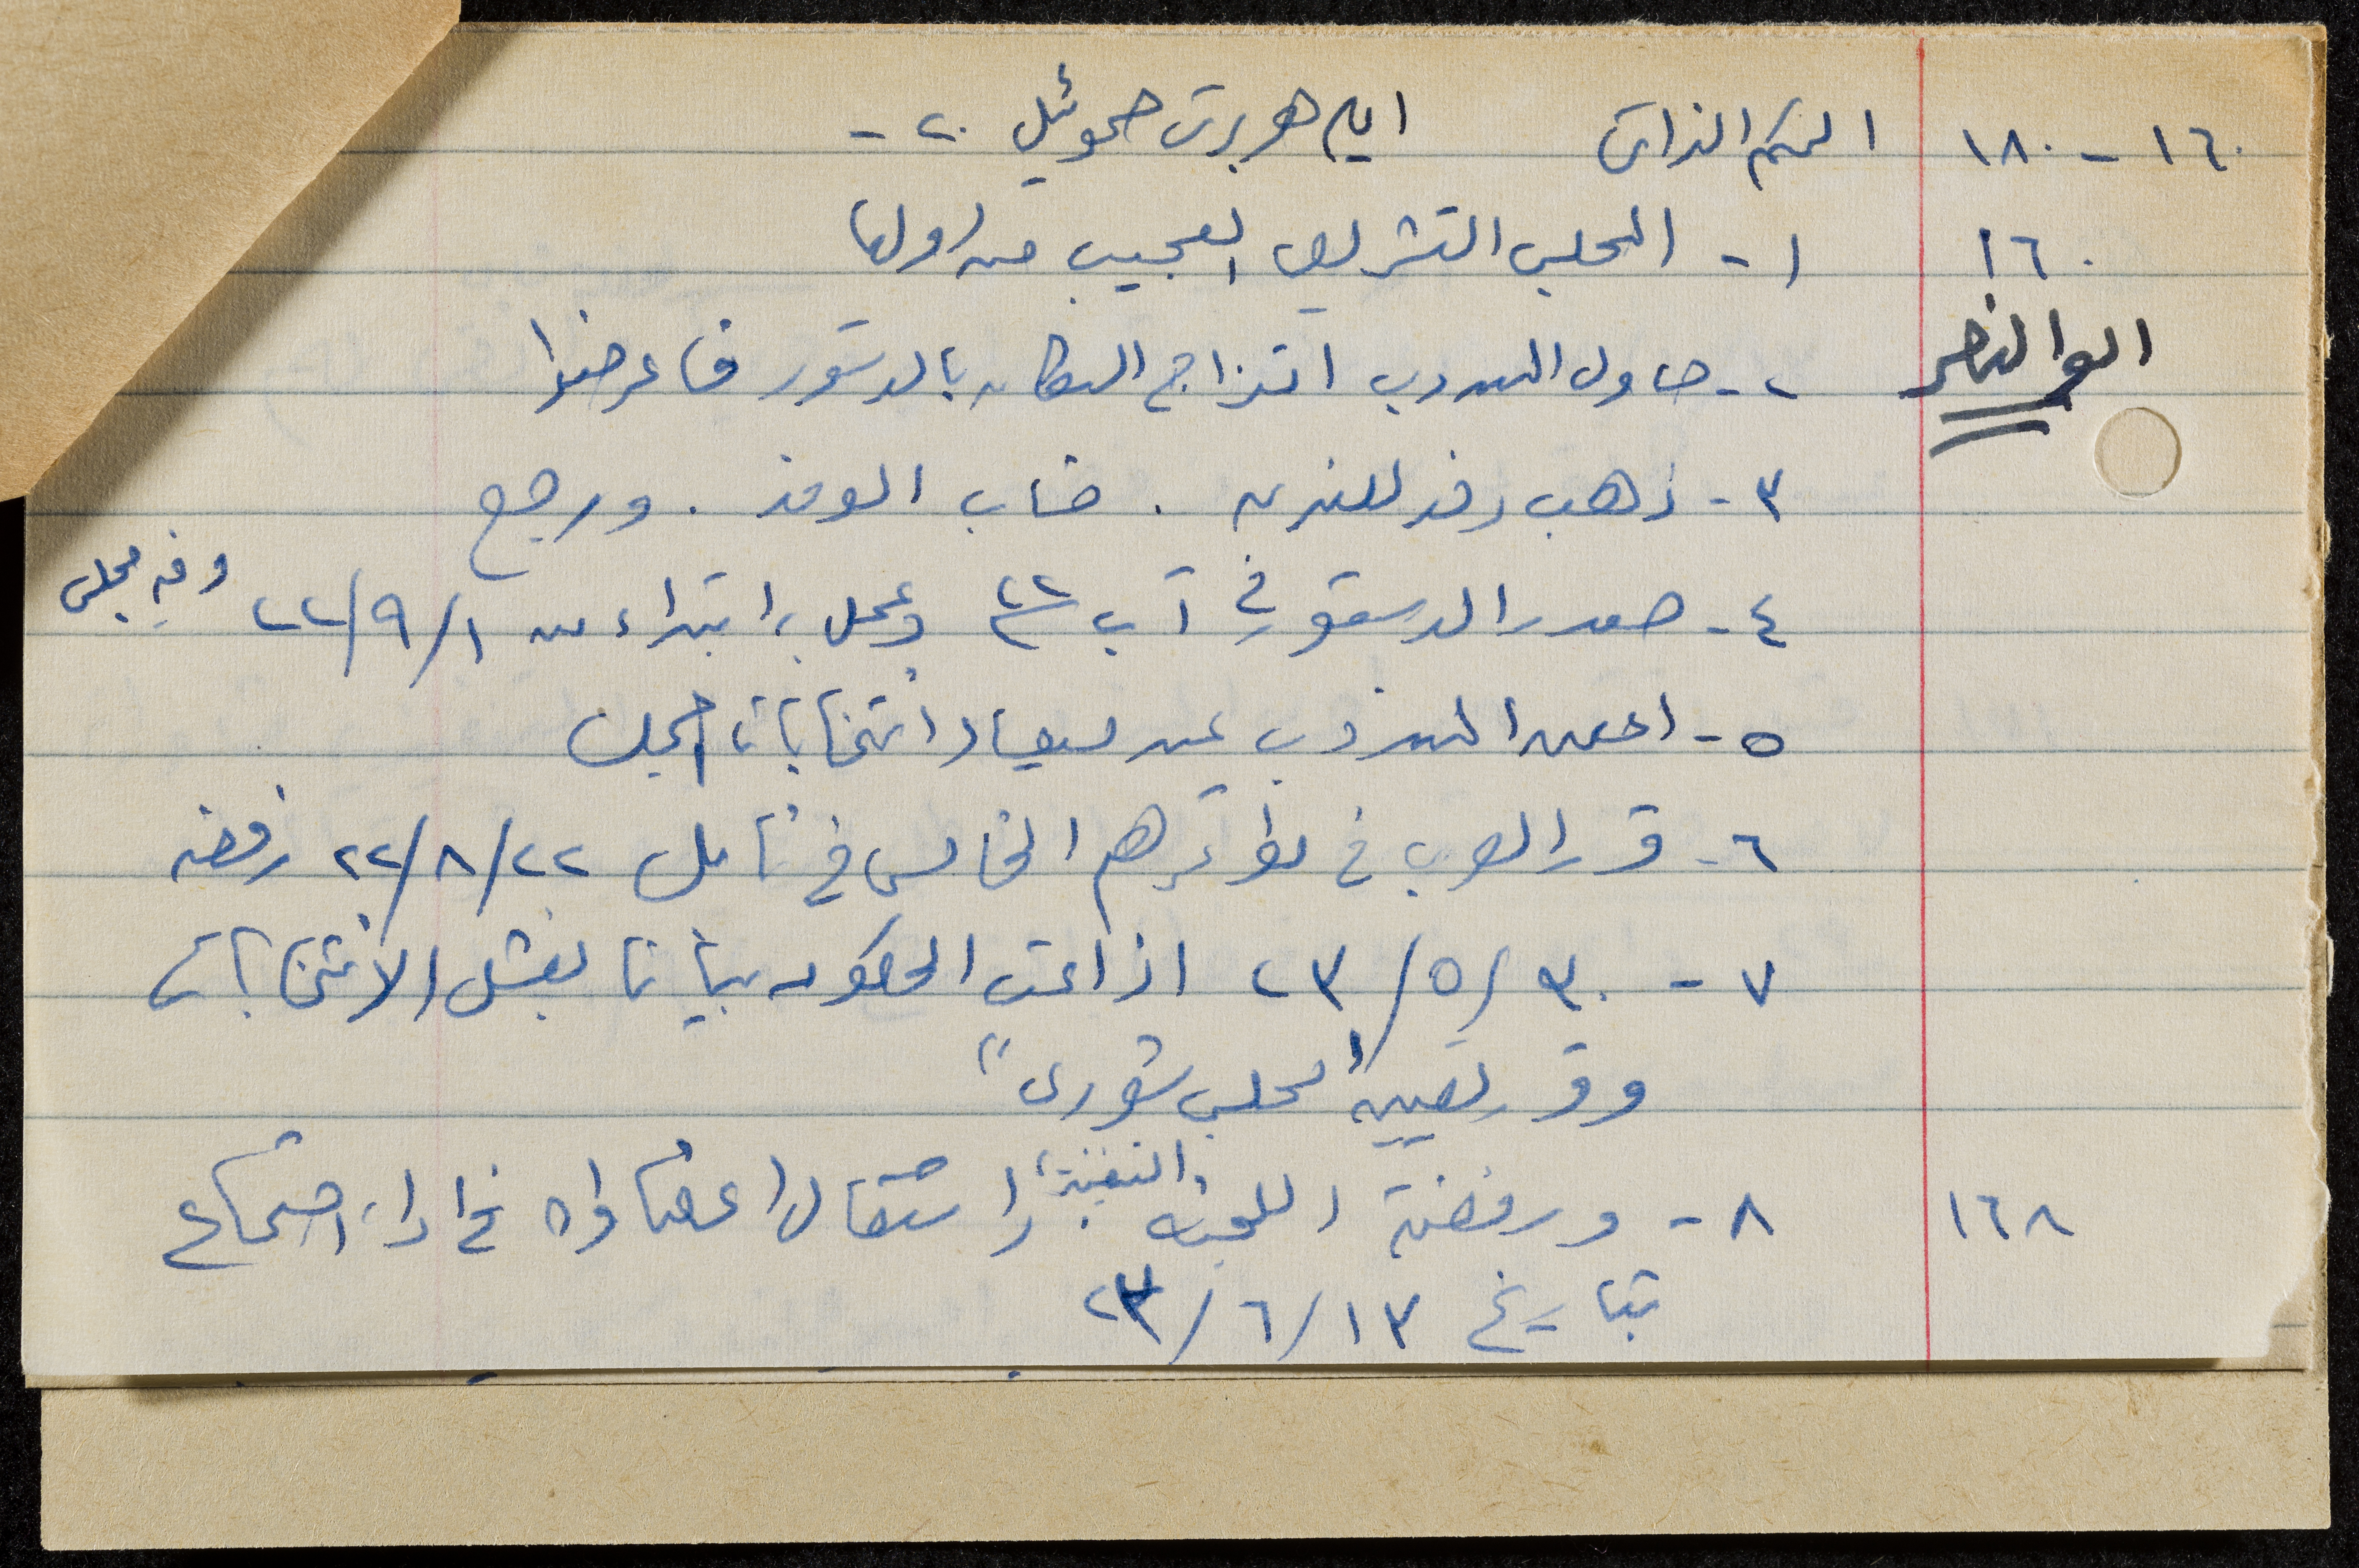 ١٦٠ - ١٨٠ الحكم الذاتي ايام هربرت صموئيل ٢٠ -
١٦٠ ١ - المجلس التشريعي العجيب
ابو النصر ٢ - حاول المندوب السكان بالدستور فاعرضوا
٣ - ذهب وفد للندن . خاب الوفد . ورجع
٤ - صدر الدستور في آب ٢٢ وعمل به ابتداء من ١/٩/٢٢ وفيه مجلس
٥ - اعلن المندوب عن ميعاد انتخابات المجلس
٦ - قرر العرب في مؤتمرهم الخامس في نابلس ٢٢/٨/٢٢ رفضه
٧ - ٣٠/٥/٢٣ اذاعت الحكومة بيانا بفشل الانتخابات
وقرر تعيين "مجلس شورى"
١٦٨ ٨ - ورفضت اللجنة التنفيذية استقال اعضاؤه اجتماع
بتاريخ ١٣/٦/٢٣